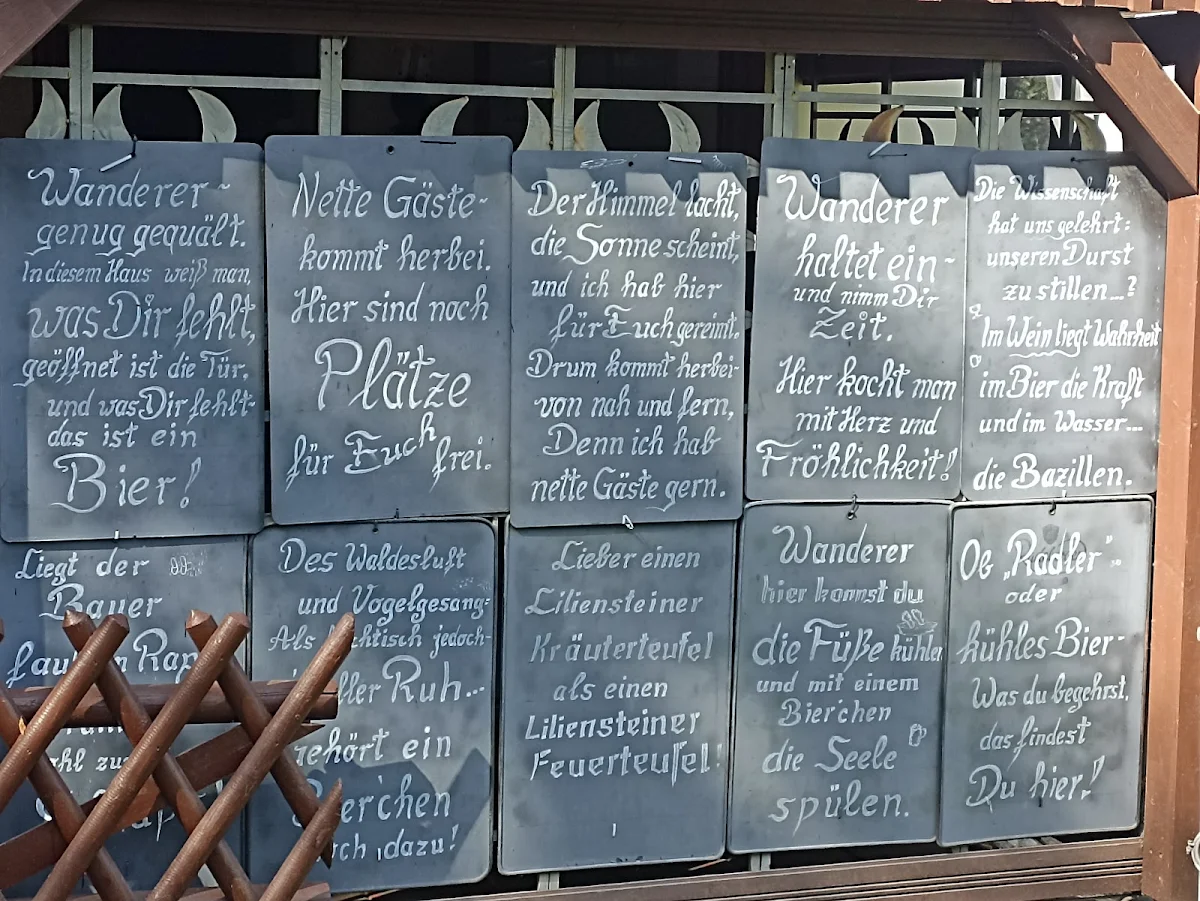 Wanderer-
genug gequält.
In diesem Haus weiß man,
was Dir fehlt,
geöffnet ist die Tür,
und was Dir fehlt-
das ist ein
Bier!
Nette Gäste-
kommt herbei.
Hier sind noch
Plätze
für Euch frei.
Der Himmel lacht,
die Sonne scheint,
und ich hab hier
für Euch gereimt.
Drum kommt herbei-
von nah und fern,
Denn ich hab
nette Gäste gern.
Wanderer
haltet ein-
und nimm Dir
Zeit.
Hier kocht man
mit Herz und
Fröhlichkeit!
Die Wissenschaft
hat uns gelehrt:
unseren Durst
zu stillen...?
Im Wein liegt Wahrheit
im Bier die Kraft
und im Wasser...
die Bazillen.
Liegt der
Bauer
Des Waldesluft
und Vogelgesang:
Als jedoch-
Ruh...
gehört ein
dazu!
Lieber einen
Liliensteiner
Kräuterteufel
als einen
Liliensteiner
Feuerteufel!
Wanderer
hier kommst du
die Füße kühlen
und mit einem
Bierchen
die Seele
spülen.
Ob „Radler"-
oder
kühles Bier-
Was du begehrst,
das findest
Du hier!